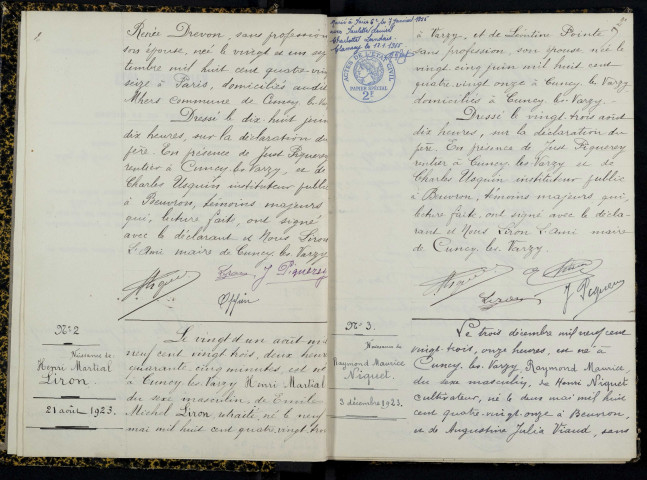 2
Renée Drevon, sans profession
son épouse, née le vingt et un sep
tembre mil huit cent quatre-vin
seize à Paris, domiciliés audit
Mhers commune de Cuncy les V
Dressé le dix huit juin
dix heures, sur la déclaration du
père. En présence de Just Pigueroy
rentier à Cuncy les Varzy, et de
Charles Usquin instituteur public
à Beuvron, témoins majeurs
qui, lecture fait, ont signé
avec le déclarant et Nous Siron
St Ami maire de Cuncy les Varzy
J Piguerey
No 2
Naissance de
Henri Martial
Siron.
21 août 1923.
Le vingt d'un août mil
neuf cent vingt trois, deux heure
quarante cinq minutes, est né
à Cuncy les Varzy Henri Martial
du sexe masculin, de Emile
Michel Siron, retraité, né le neuf
mai mil huit cent quatre-vingt tro
Marié à Paris 6e le 7 Janvier 1956
avec Paulette
Charlotte
12-1-1956
ACTES DE L'ETAT CIVIL
PAPIER SPECIAL
2F
à Varzy, et de Léontine Pointe
sans profession, son épouse, née le
vingt cinq juin mil huit cent
quatre vingt onze à Cuncy les Varzy
domiciliés à Cuncy les Varzy.
Dressé le vingt trois août
dix heures, sur la déclaration du
père. En présence de Just Pigueroy
rentier à Cuncy les Varzy et de
Charles Usquin instituteur public
à Beuvron, témoins majeurs qui,
lecture fait, ont signé avec le décla-
rant et Nous Siron St Ami maire
de Cuncy les Varzy
J Piguerey
No 3.
Naissance de
Raymond Maurice
Niquet.
3 décembre 1923.
Le trois décembre mil neuf cent
vingt-trois, onze heures, est né à
Cuncy les Varzy, Raymond Maurice,
du sexe masculin, de Henri Niquet
cultivateur, né le deux mai mil huit
cent quatre-vingt-onze à Beuvron,
et de Augustine Julia Viaud, sans